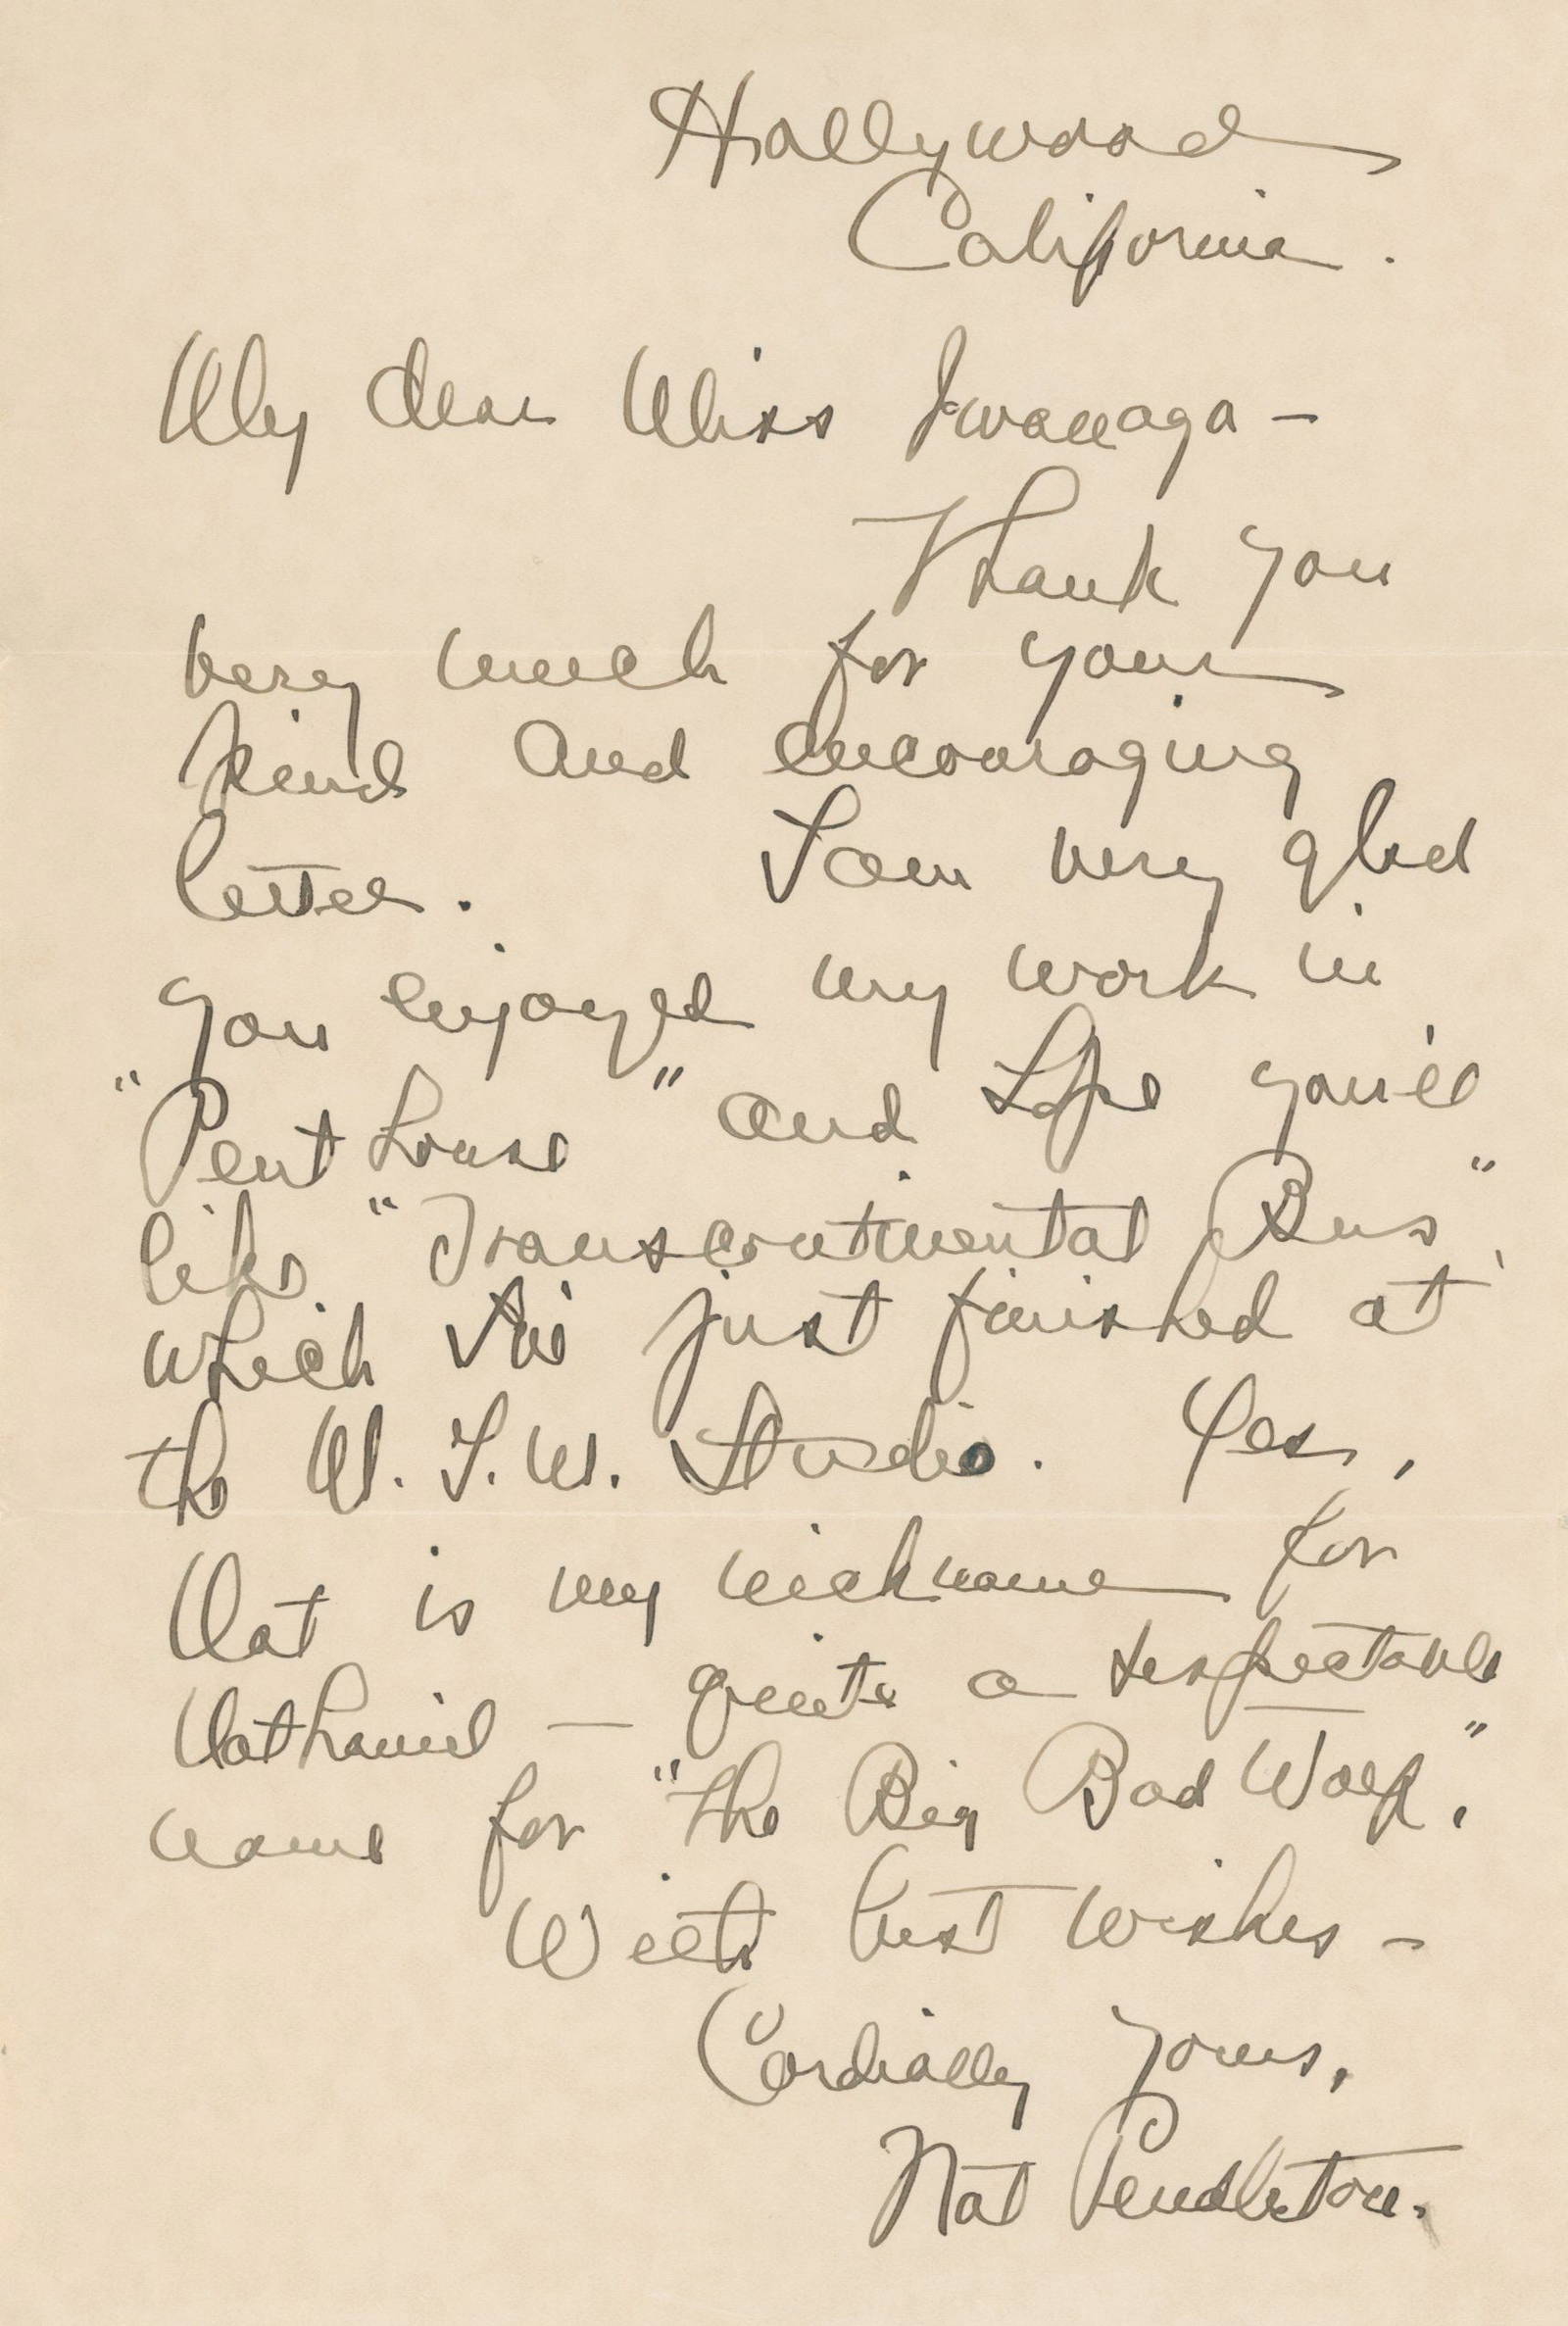 Hollywood
California.
My dear Miss Iwanaga –
Thank you
very much for your
kind and encouraging
letter. I am very glad
you enjoyed my work in
"Pent house" and hope you'll
like "Transcontinental Bus",
which I've just finished at
the M. G. M. Studio. Yes,
Nat is my nickname for
Nathaniel — quite a respectable
name for "the Big Bad Wolf."
With best wishes –
Cordially yours,
Nat Pendleton.